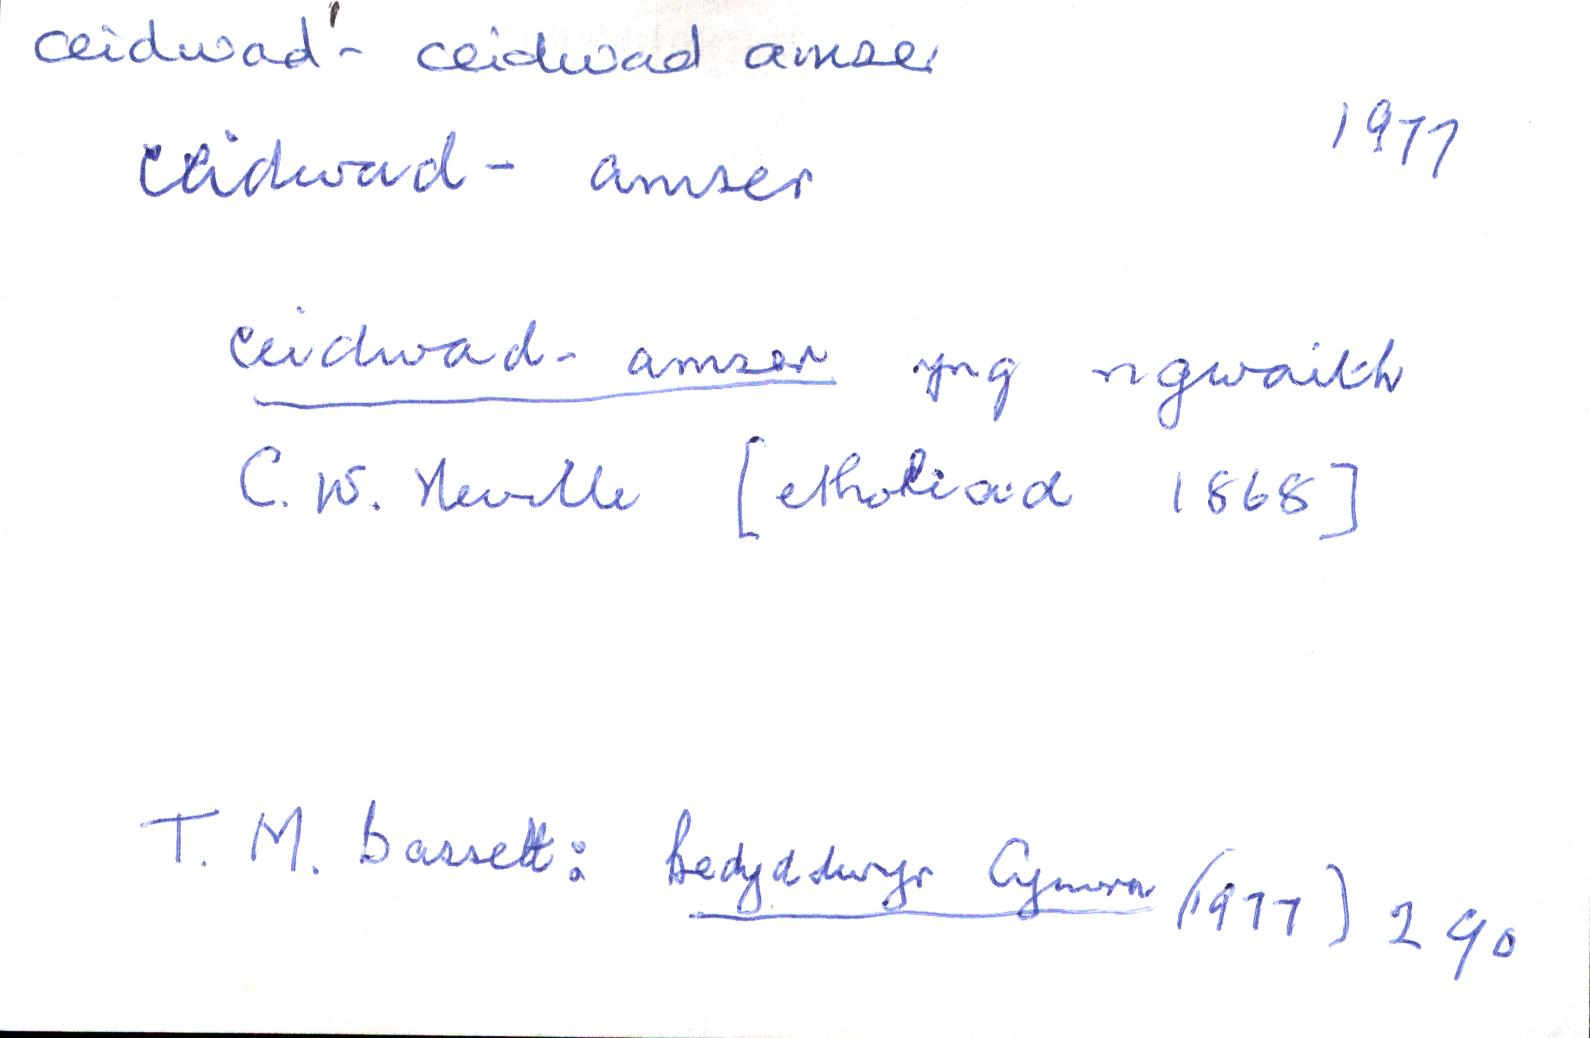 ceidwad¹- ceidwad amser
1977
ceidwad- amser
ceidwad- amser yng ngwaith
C. W. Neville [etholiad 1868]
T. M. Bassett: Bedyddwyr Cymru (1977) 290